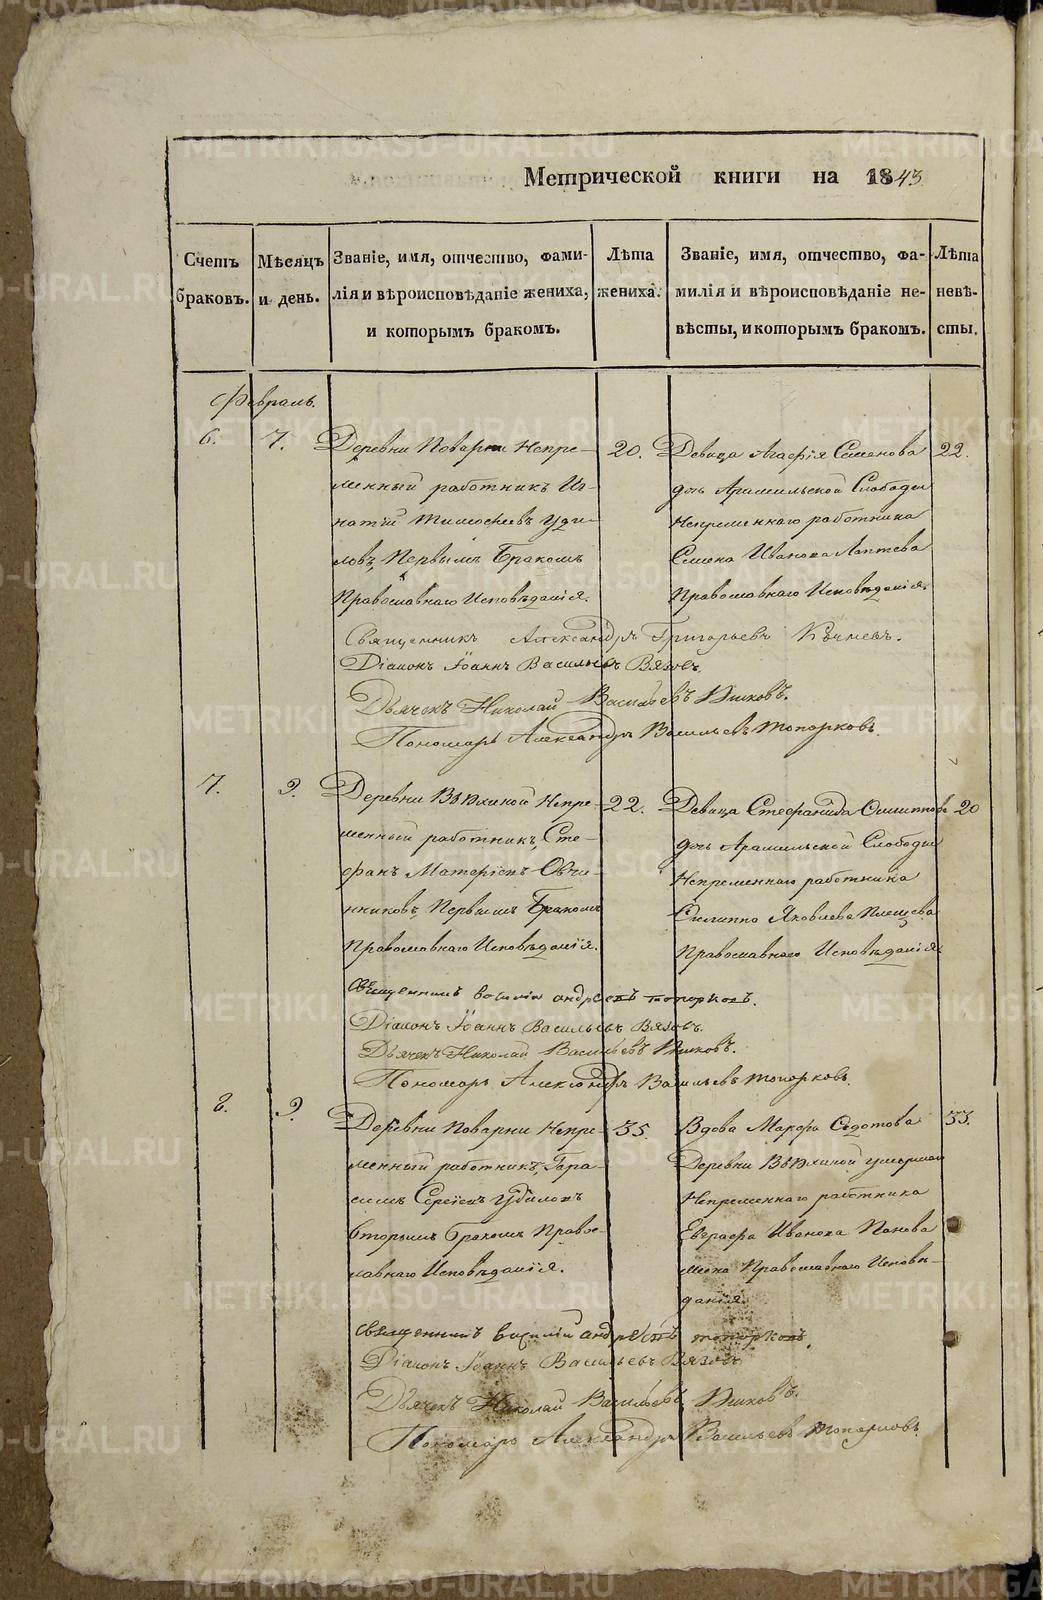 Метрической книги на 1843
Счетъ браковъ.
Мѣсяцъ и день.
Званіе, имя, отчество, фами-
лія и вѣроисповѣданіе жениха,
и которымъ бракомъ.
Лѣта
жениха.
Званіе, имя, отчество, фа-
милія и вѣроисповѣданіе не-
вѣсты, и которымъ бракомъ.
Лѣта
невѣ-
сты.
Февраль.
6.
7.
Деревни Поварни Непре-
менный работникъ Иг-
натій Тимофеевъ Уди-
ловъ, Первымъ Бракомъ
Православнаго Исповѣданія.
20.
Девица Агафія Семенова
дочь Арамильской Слободы
Непременнаго работника
Семена Иванова Лаптева
Православнаго Исповѣданія.
22.
Священникъ Александръ Григорьевъ
Діаконъ Іоаннъ Васильевъ Вязовъ
Дьячекъ Николай Васильевъ
Пономарь Александръ Васильевъ Топорковъ.
7.
9.
Деревни Непре-
менный работникъ, Сте-
фанъ Овчи-
нниковъ, Первымъ Бракомъ
Православнаго Исповѣданія.
22.
Девица Стефанида Филиппова
дочь Арамильской Слободы
Непременнаго работника
Филиппа Яковлева Плещева
Православнаго Исповѣданія.
20
священникъ василій андреевъ топорковъ.
Діаконъ Іоаннъ Васильевъ Вязовъ.
Дьячекъ Николай Васильевъ
Пономарь Александръ Васильевъ Топорковъ.
8.
9.
Деревни Поварни Непре-
менный работникъ, Гера-
симъ Удиловъ
вторымъ Бракомъ Правос-
лавнаго Исповѣданія.
35.
Вдова Марфа Федотова
Деревни умершаго
Непременнаго работника
Евграфа Иванова Панова
жена Православнаго Исповѣ-
данія.
33.
священникъ василій андреевъ топорковъ.
Діаконъ Іоаннъ Васильевъ Вязовъ
Дьячекъ Николай Васильевъ
Пономарь Александръ Васильевъ Топорковъ.
METRIKI.GASO-URAL.RU